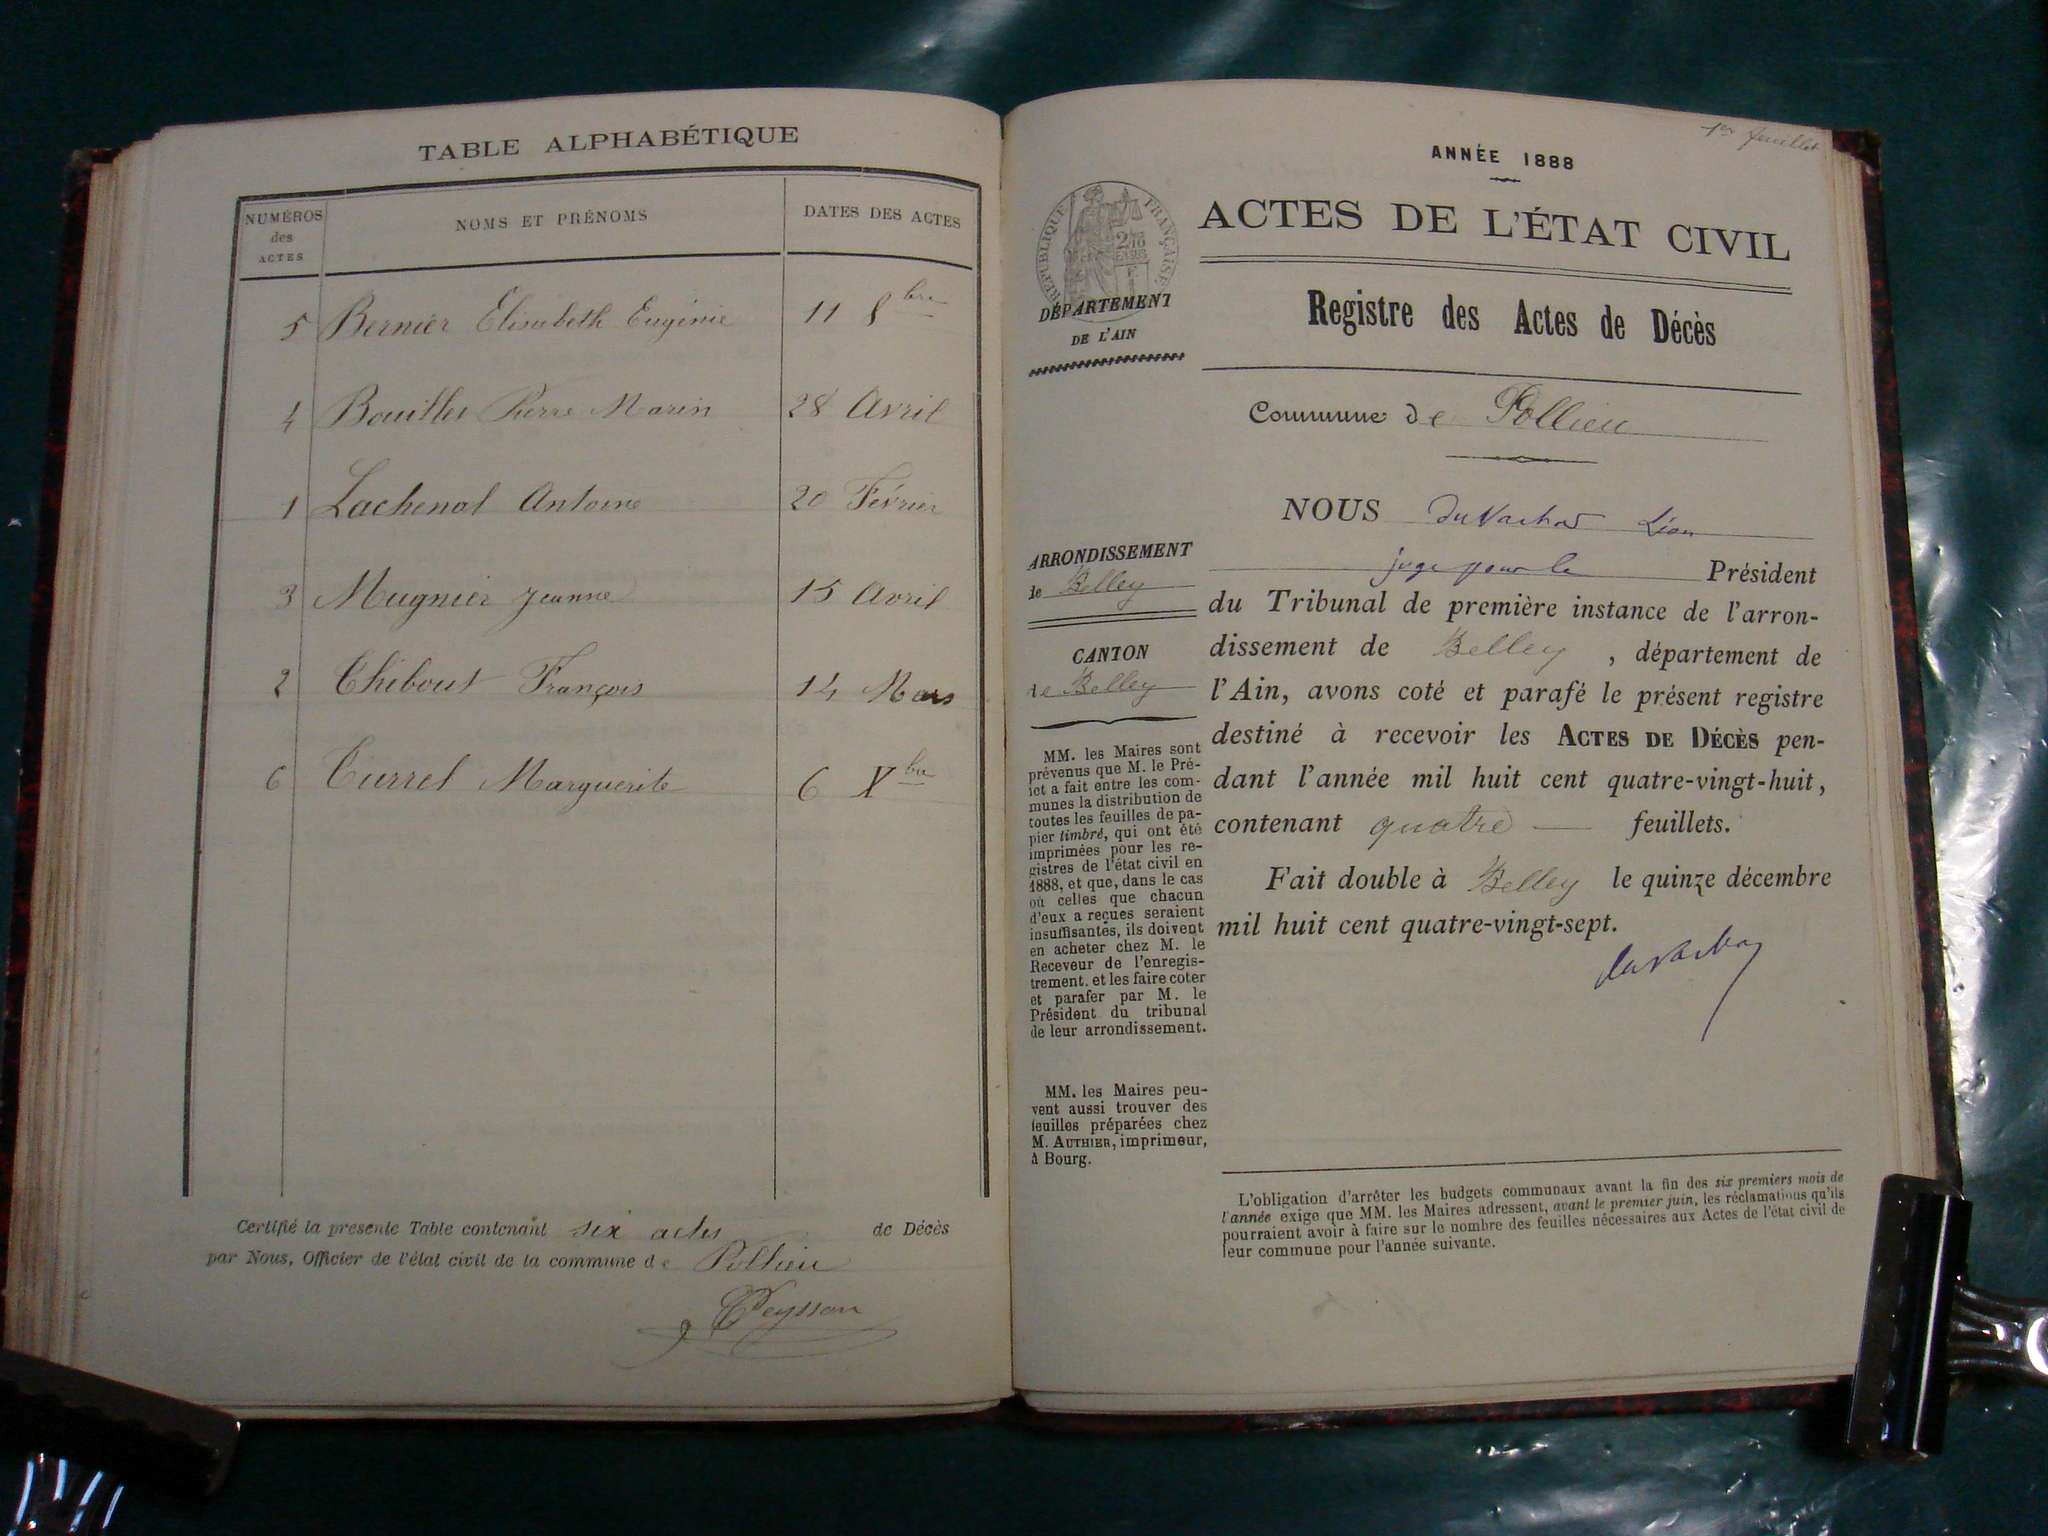 TABLE ALPHABÉTIQUE
NUMÉROS des ACTES NOMS ET PRÉNOMS DATES DES ACTES
5 Bernier Elisabeth Eugénie 11 8bre
4 Bouillet Pierre Marin 28 Avril
1 Lachenal Antoine 20 Février
3 Mugnier Jeanne 15 Avril
2 Thibout François 14 Mars
6 Turrel Marguerite 6 Xbre
Certifié la présente Table contenant six actes de Décès
par Nous, Officier de l'état civil de la commune de Pollieu
Peysson
1er feuillet
ANNÉE 1888
ACTES DE L'ÉTAT CIVIL
RÉPUBLIQUE FRANÇAISE
DÉPARTEMENT
DE L'AIN
Registre des Actes de Décès
Commune de Pollieu
ARRONDISSEMENT
de Belley
CANTON
de Belley
NOUS Léon
juge pour le Président
du Tribunal de première instance de l'arron-
dissement de Belley, département de
l'Ain, avons coté et parafé le présent registre
destiné à recevoir les ACTES DE DÉCÈS pen-
dant l'année mil huit cent quatre-vingt-huit,
contenant quatre — feuillets.
Fait double à Belley le quinze décembre
mil huit cent quatre-vingt-sept.
MM. les Maires sont
prévenus que M. le Pré-
fet a fait entre les com-
munes la distribution de
toutes les feuilles de pa-
pier timbré, qui ont été
imprimées pour les re-
gistres de l'état civil en
1888, et que, dans le cas
où celles que chacun
d'eux a reçues seraient
insuffisantes, ils doivent
en acheter chez M. le
Receveur de l'enregis-
trement. et les faire coter
et parafer par M. le
Président du tribunal
de leur arrondissement.
MM. les Maires peu-
vent aussi trouver des
feuilles préparées chez
M. AUTHIER, imprimeur,
à Bourg.
L'obligation d'arrêter les budgets communaux avant la fin des six premiers mois de
l'année exige que MM. les Maires adressent, avant le premier juin, les réclamations qu'ils
pourraient avoir à faire sur le nombre des feuilles nécessaires aux Actes de l'état civil de
leur commune pour l'année suivante.